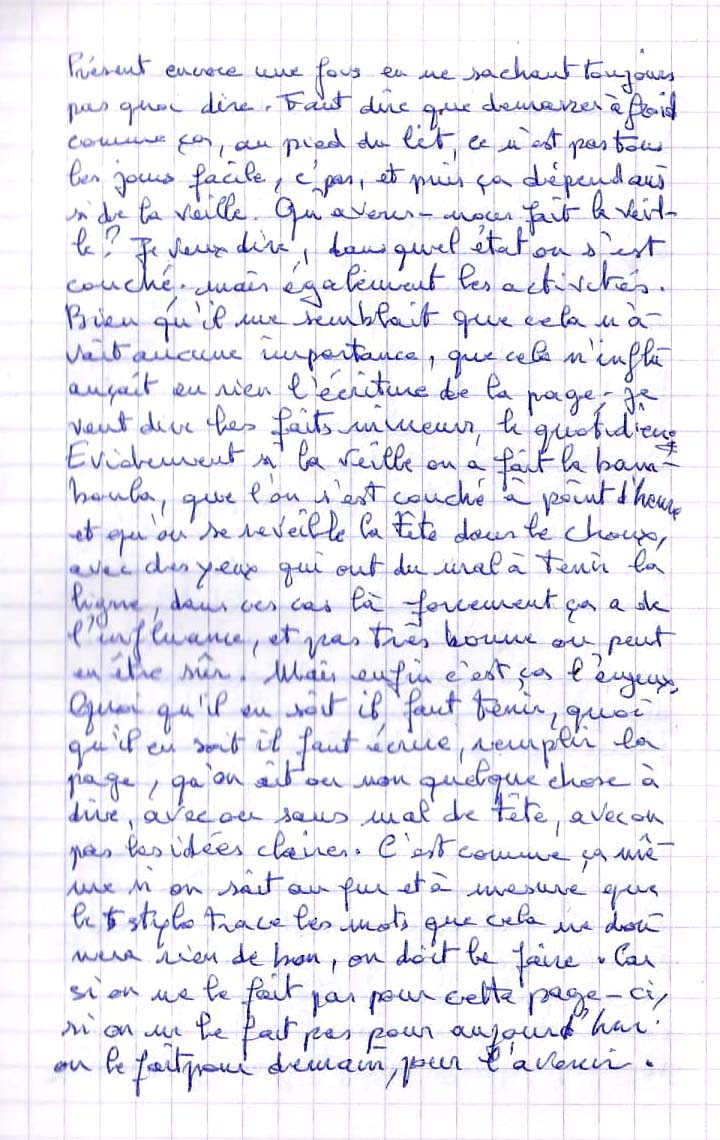 Présent encore une fois en ne sachant toujours
pas quoi dire. Faut dire que demarrer à froid
comme ça, au pied du lit, ce n'est pas tous
les jours facile, c'pas, et puis ça dépend aus
si de la veille. Qu'avons-nous fait la veil-
le? Je veux dire, dans quel état on s'est
couché. mais également les activités.
Bien qu'il me semblait que cela n'a-
vait aucune importance, que cela n'influ
ançait en rien l'écriture de la page, - je
veut dire les faits mineurs, le quotidien.
Evidemment si la veille on a fait la bam-
boula, que l'on s'est couché à point d'heure
et qu'on se reveille la tête dans le choux,
avec des yeux qui ont du mal à tenir la
ligne, dans ces cas là forcement ça a de
l'influance, et pas très bonne on peut
en être sûr. Mais enfin c'est ça l'enjeux.
Quoi qu'il en soit il faut tenir, quoi
qu'il en soit il faut écrire, remplir la
page, qu'on ait ou non quelque chose à
dire, avec ou sans mal de tête, avec ou
pas les idées claires. C'est comme ça mê-
me si on sait au fur et à mesure que
le stylo trace les mots que cela ne don
nera rien de bon, on doit le faire. Car
si on ne le fait pas pour cette page-ci,
si on ne le fait pas pour aujourd'hui
on le fait pour demain, pour l'avenir.